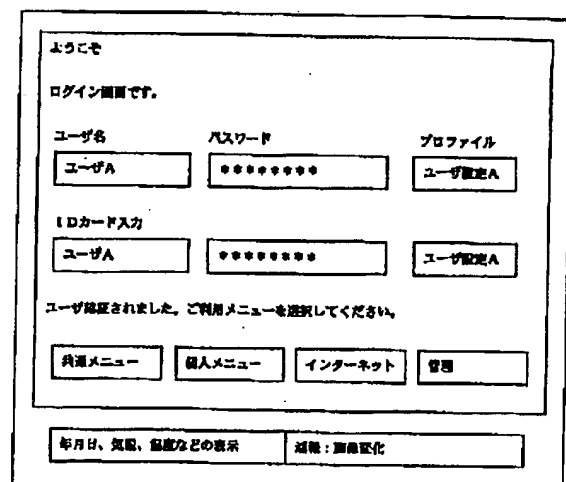 ようこそ
ログイン画面です。
ユーザ名 パスワード プロファイル
ユーザA ******** ユーザ設定A
IDカード入力
ユーザA ******** ユーザ設定A
ユーザ認証されました。ご利用メニューを選択してください。
共通メニュー 個人メニュー インターネット 管理
年月日、気温、温度などの表示 :画像変化